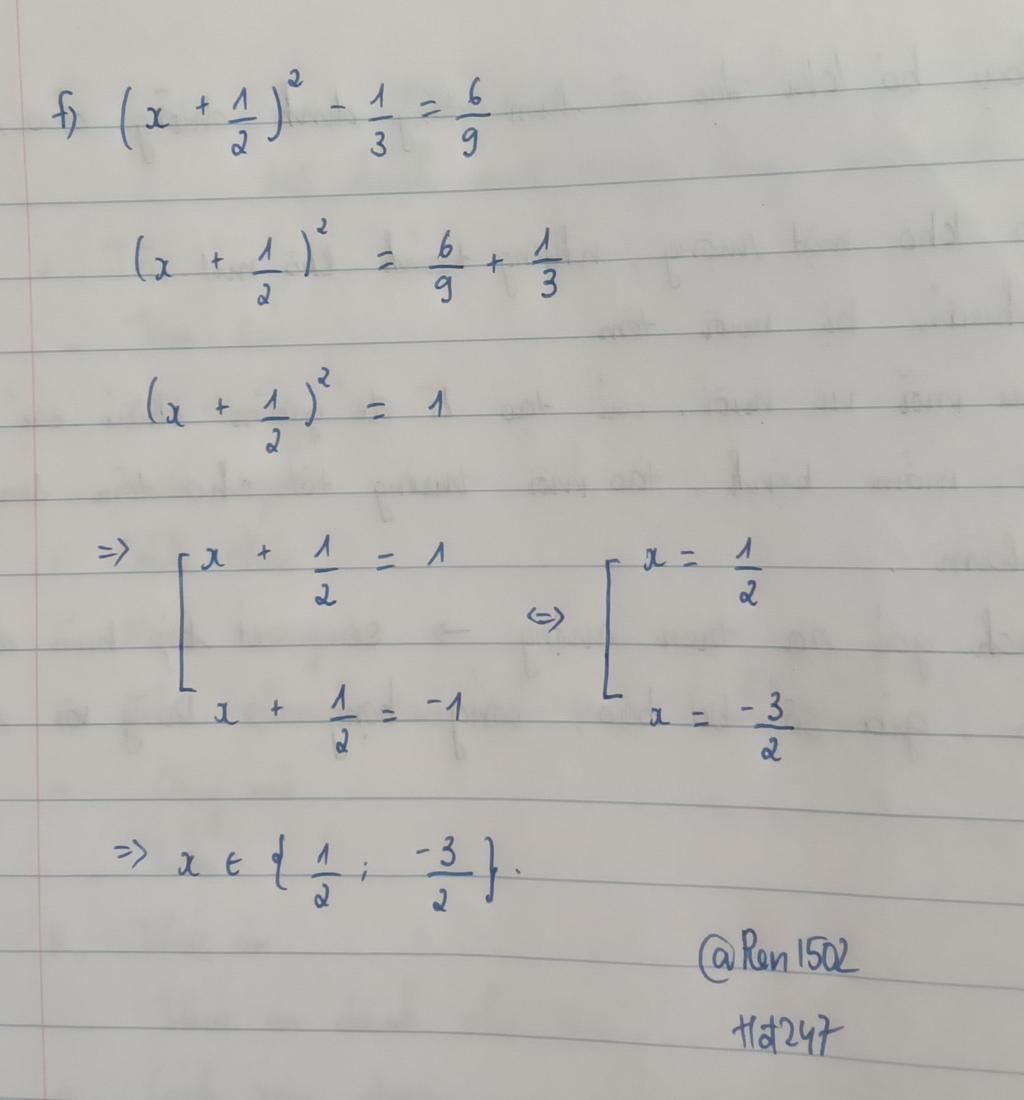 f) (x + 1/2)² - 1/3 = 6/9
(x + 1/2)² = 6/9 + 1/3
(x + 1/2)² = 1
=> [ x + 1/2 = 1 <=> [ x = 1/2
x + 1/2 = -1 x = -3/2
=> x ∈ { 1/2 ; -3/2 }.
@Ren1502